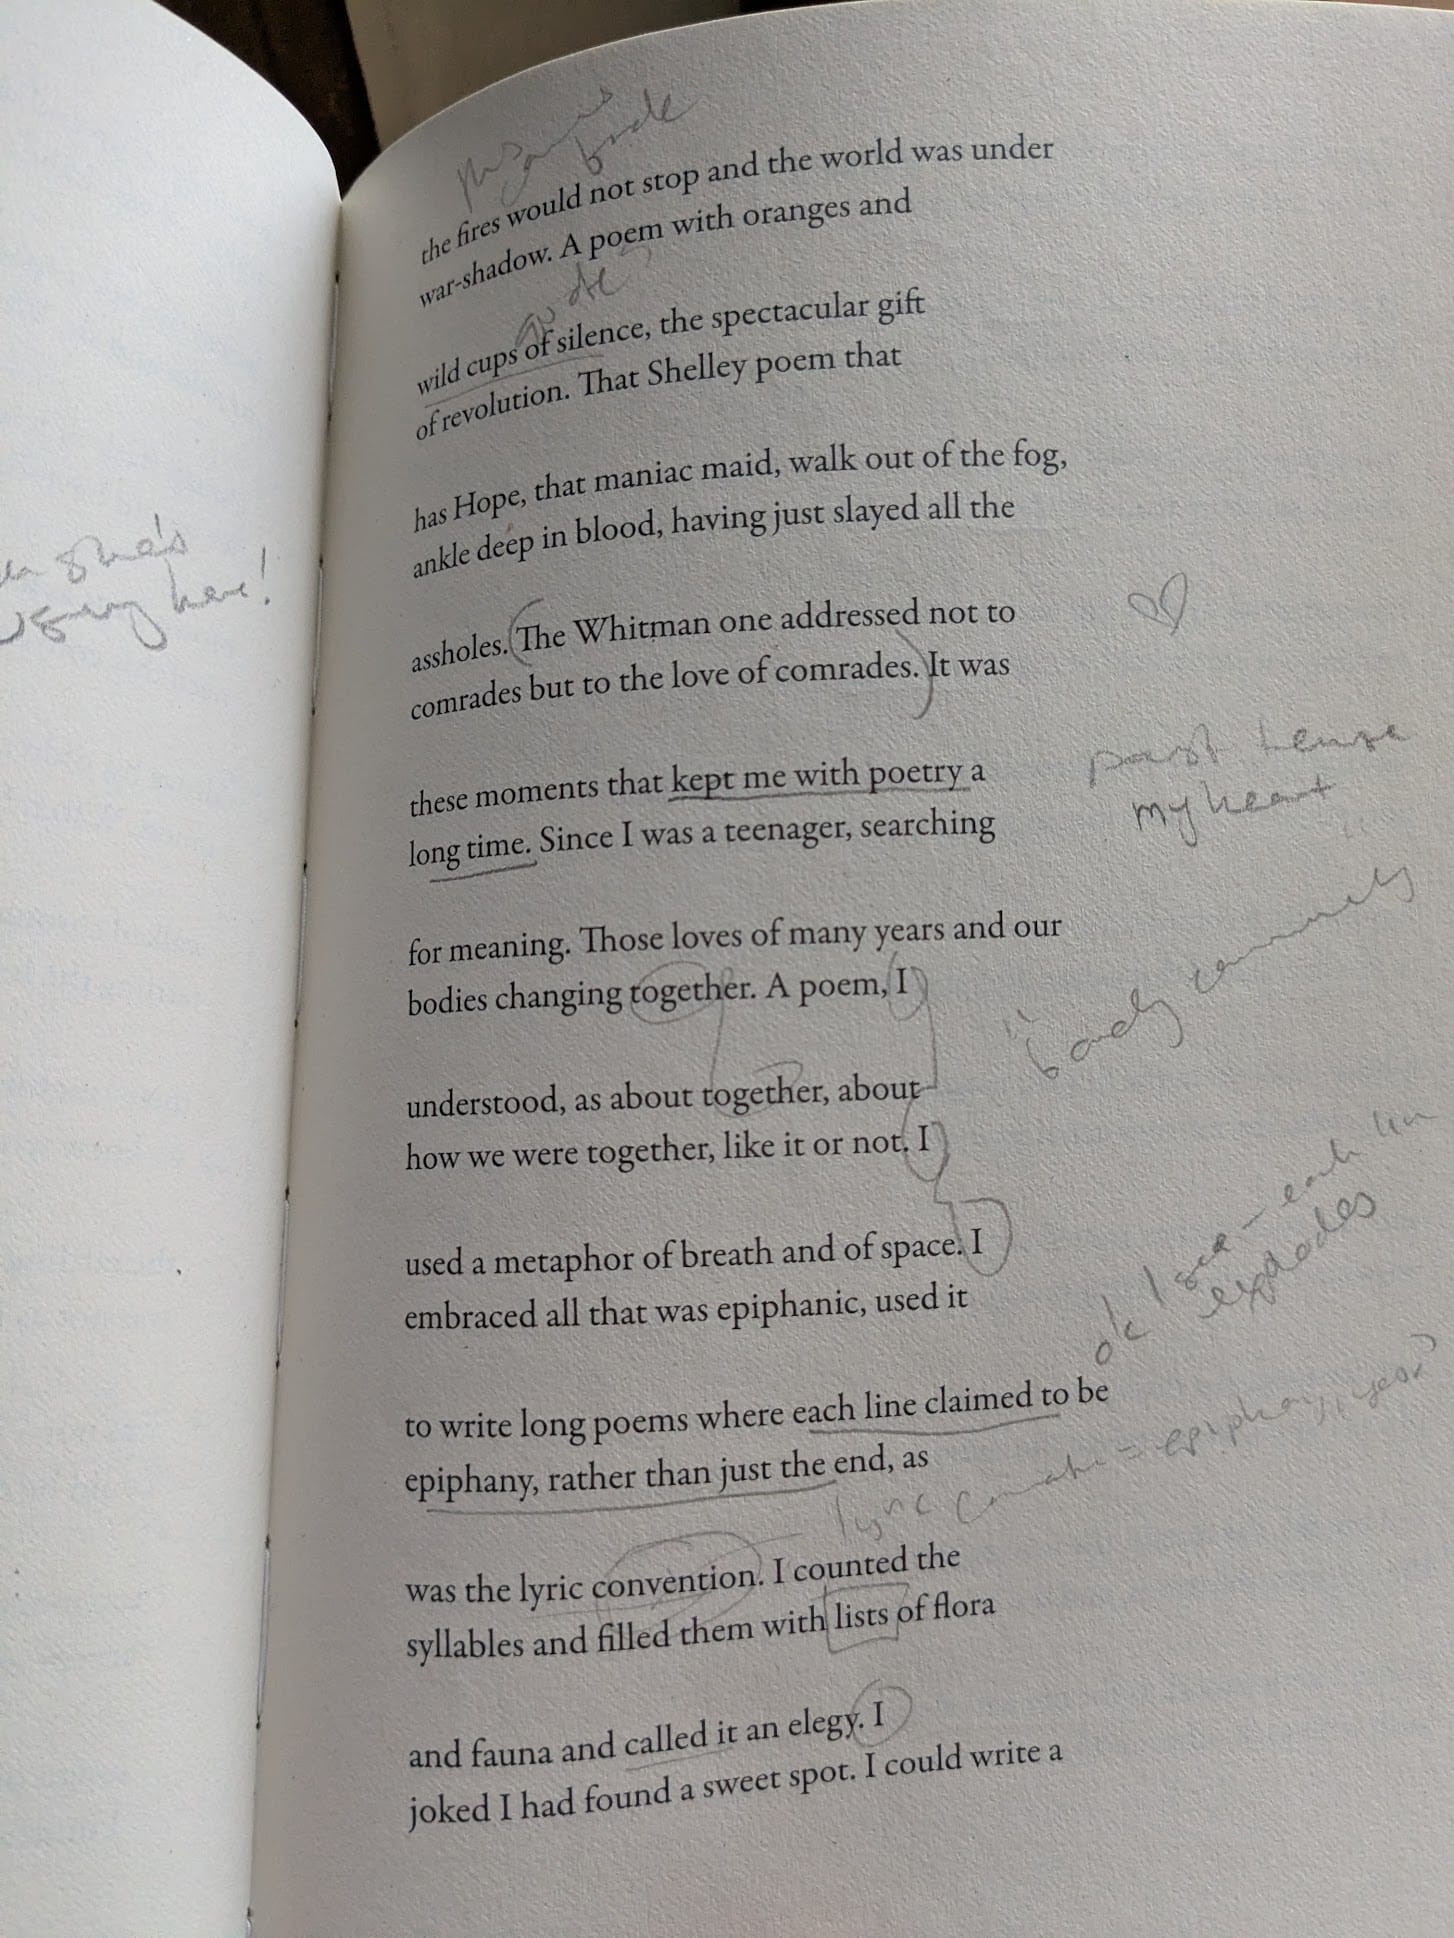 she's
here!
the fires would not stop and the world was under
war-shadow. A poem with oranges and
wild cups of silence, the spectacular gift
of revolution. That Shelley poem that
has Hope, that maniac maid, walk out of the fog,
ankle deep in blood, having just slayed all the
assholes. The Whitman one addressed not to
comrades but to the love of comrades. It was
these moments that kept me with poetry a
past tense
my heart
long time. Since I was a teenager, searching
for meaning. Those loves of many years and our
bodies changing together. A poem, I
understood, as about together, about
how we were together, like it or not. I
used a metaphor of breath and of space. I
embraced all that was epiphanic, used it
ok I see – each line
explodes
to write long poems where each line claimed to be
epiphany, rather than just the end, as
lyric = epiphany,
was the lyric convention. I counted the
syllables and filled them with lists of flora
and fauna and called it an elegy. I
joked I had found a sweet spot. I could write a